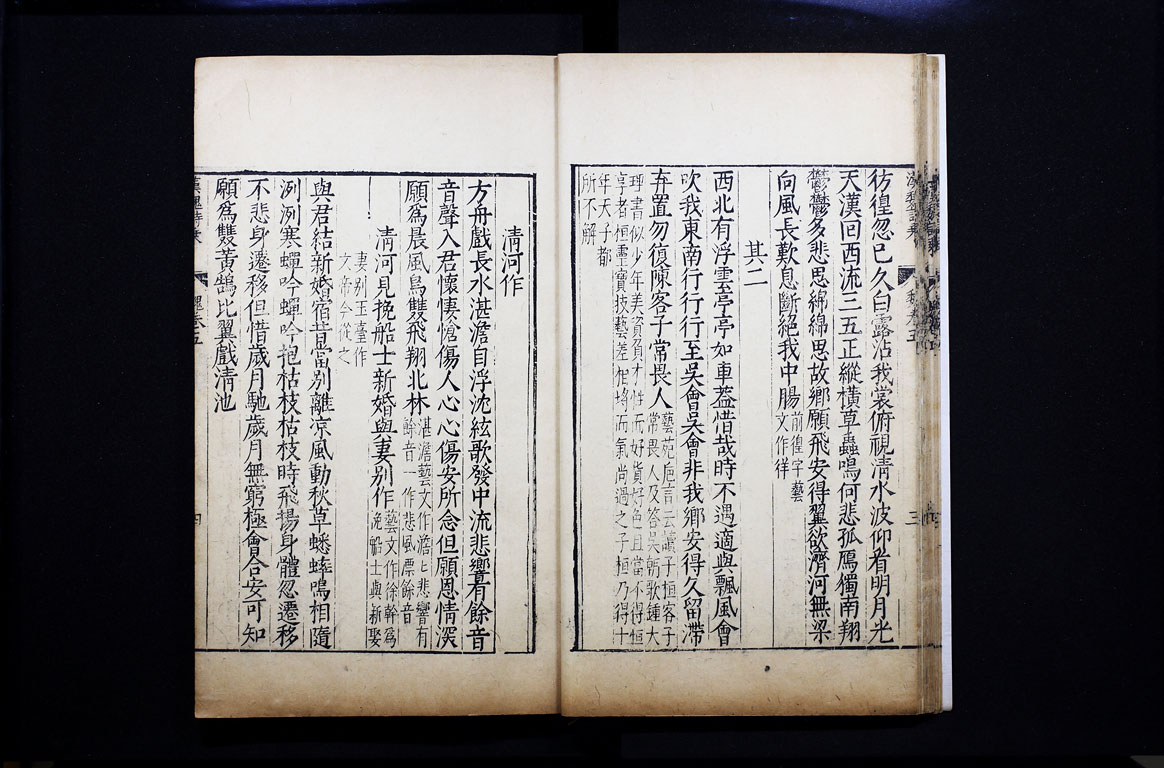 彷徨忽已久白露沾我裳俯視清水波仰看明月光
天漢回西流三五正縱橫草蟲鳴何悲孤鴈獨南翔
鬱鬱多悲思綿綿思故鄉願飛安得翼欲濟河無梁
向風長歎息斷絕我中腸
前徨字藝
文作徉
其二
西北有浮雲亭亭如車蓋惜哉時不遇適與飄風會
吹我東南行行行至吳會吳會非我鄉安得久留滯
弃置勿復陳客子常畏人
藝苑巵言云讀子桓客子
常畏人及答吳朝歌鍾大
理書似少年美資負才性而好貨好色且當不得恒
享者桓靈寶技藝差相埒而氣尚過之子桓乃得十
年天子都
所不解
清河作
方舟戲長水湛澹自浮沈絃歌發中流悲響有餘音
音聲入君懷悽愴傷人心心傷安所念但願恩情深
願爲晨風鳥雙飛翔北林
湛澹藝文作澹ヒ悲響有
餘音一作悲風漂餘音
清河見挽船士新婚與妻別作
藝文作徐幹爲
挽船士與新娶
妻別玉臺作
文帝今從之
與君結新婚宿昔當別離凉風動秋草蟋蟀鳴相隨
冽冽寒蟬吟蟬吟抱枯枝枯枝時飛揚身體忽遷移
不悲身遷移但惜歲月馳歲月無窮極會合安可知
願爲雙黃鵠比翼戲清池